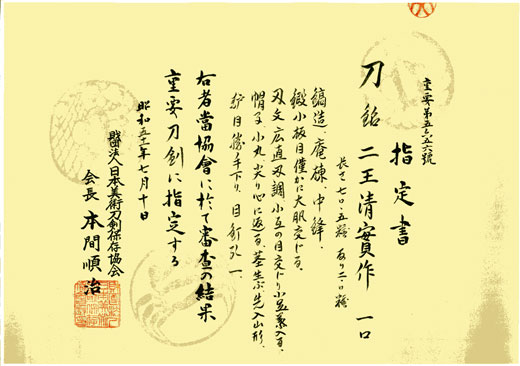 重要第五六五六號
指定書
刀 銘 二王清實作 一口
長さ七〇・五糎 反り二・〇糎
鎬造、庵棟、中鋒、
鍛小板目僅かに大肌交じる、
刃文広直刃調小互の目交じり小足葉入る、
帽子小丸尖り心に返る、茎生ぶ先入山形、
鑢目勝手下り、目釘孔一、
右者當協會に於て審査の結果
重要刀剣に指定する
昭和五十一年七月十日
財團法人日本美術刀剣保存協会
会長 本間順治